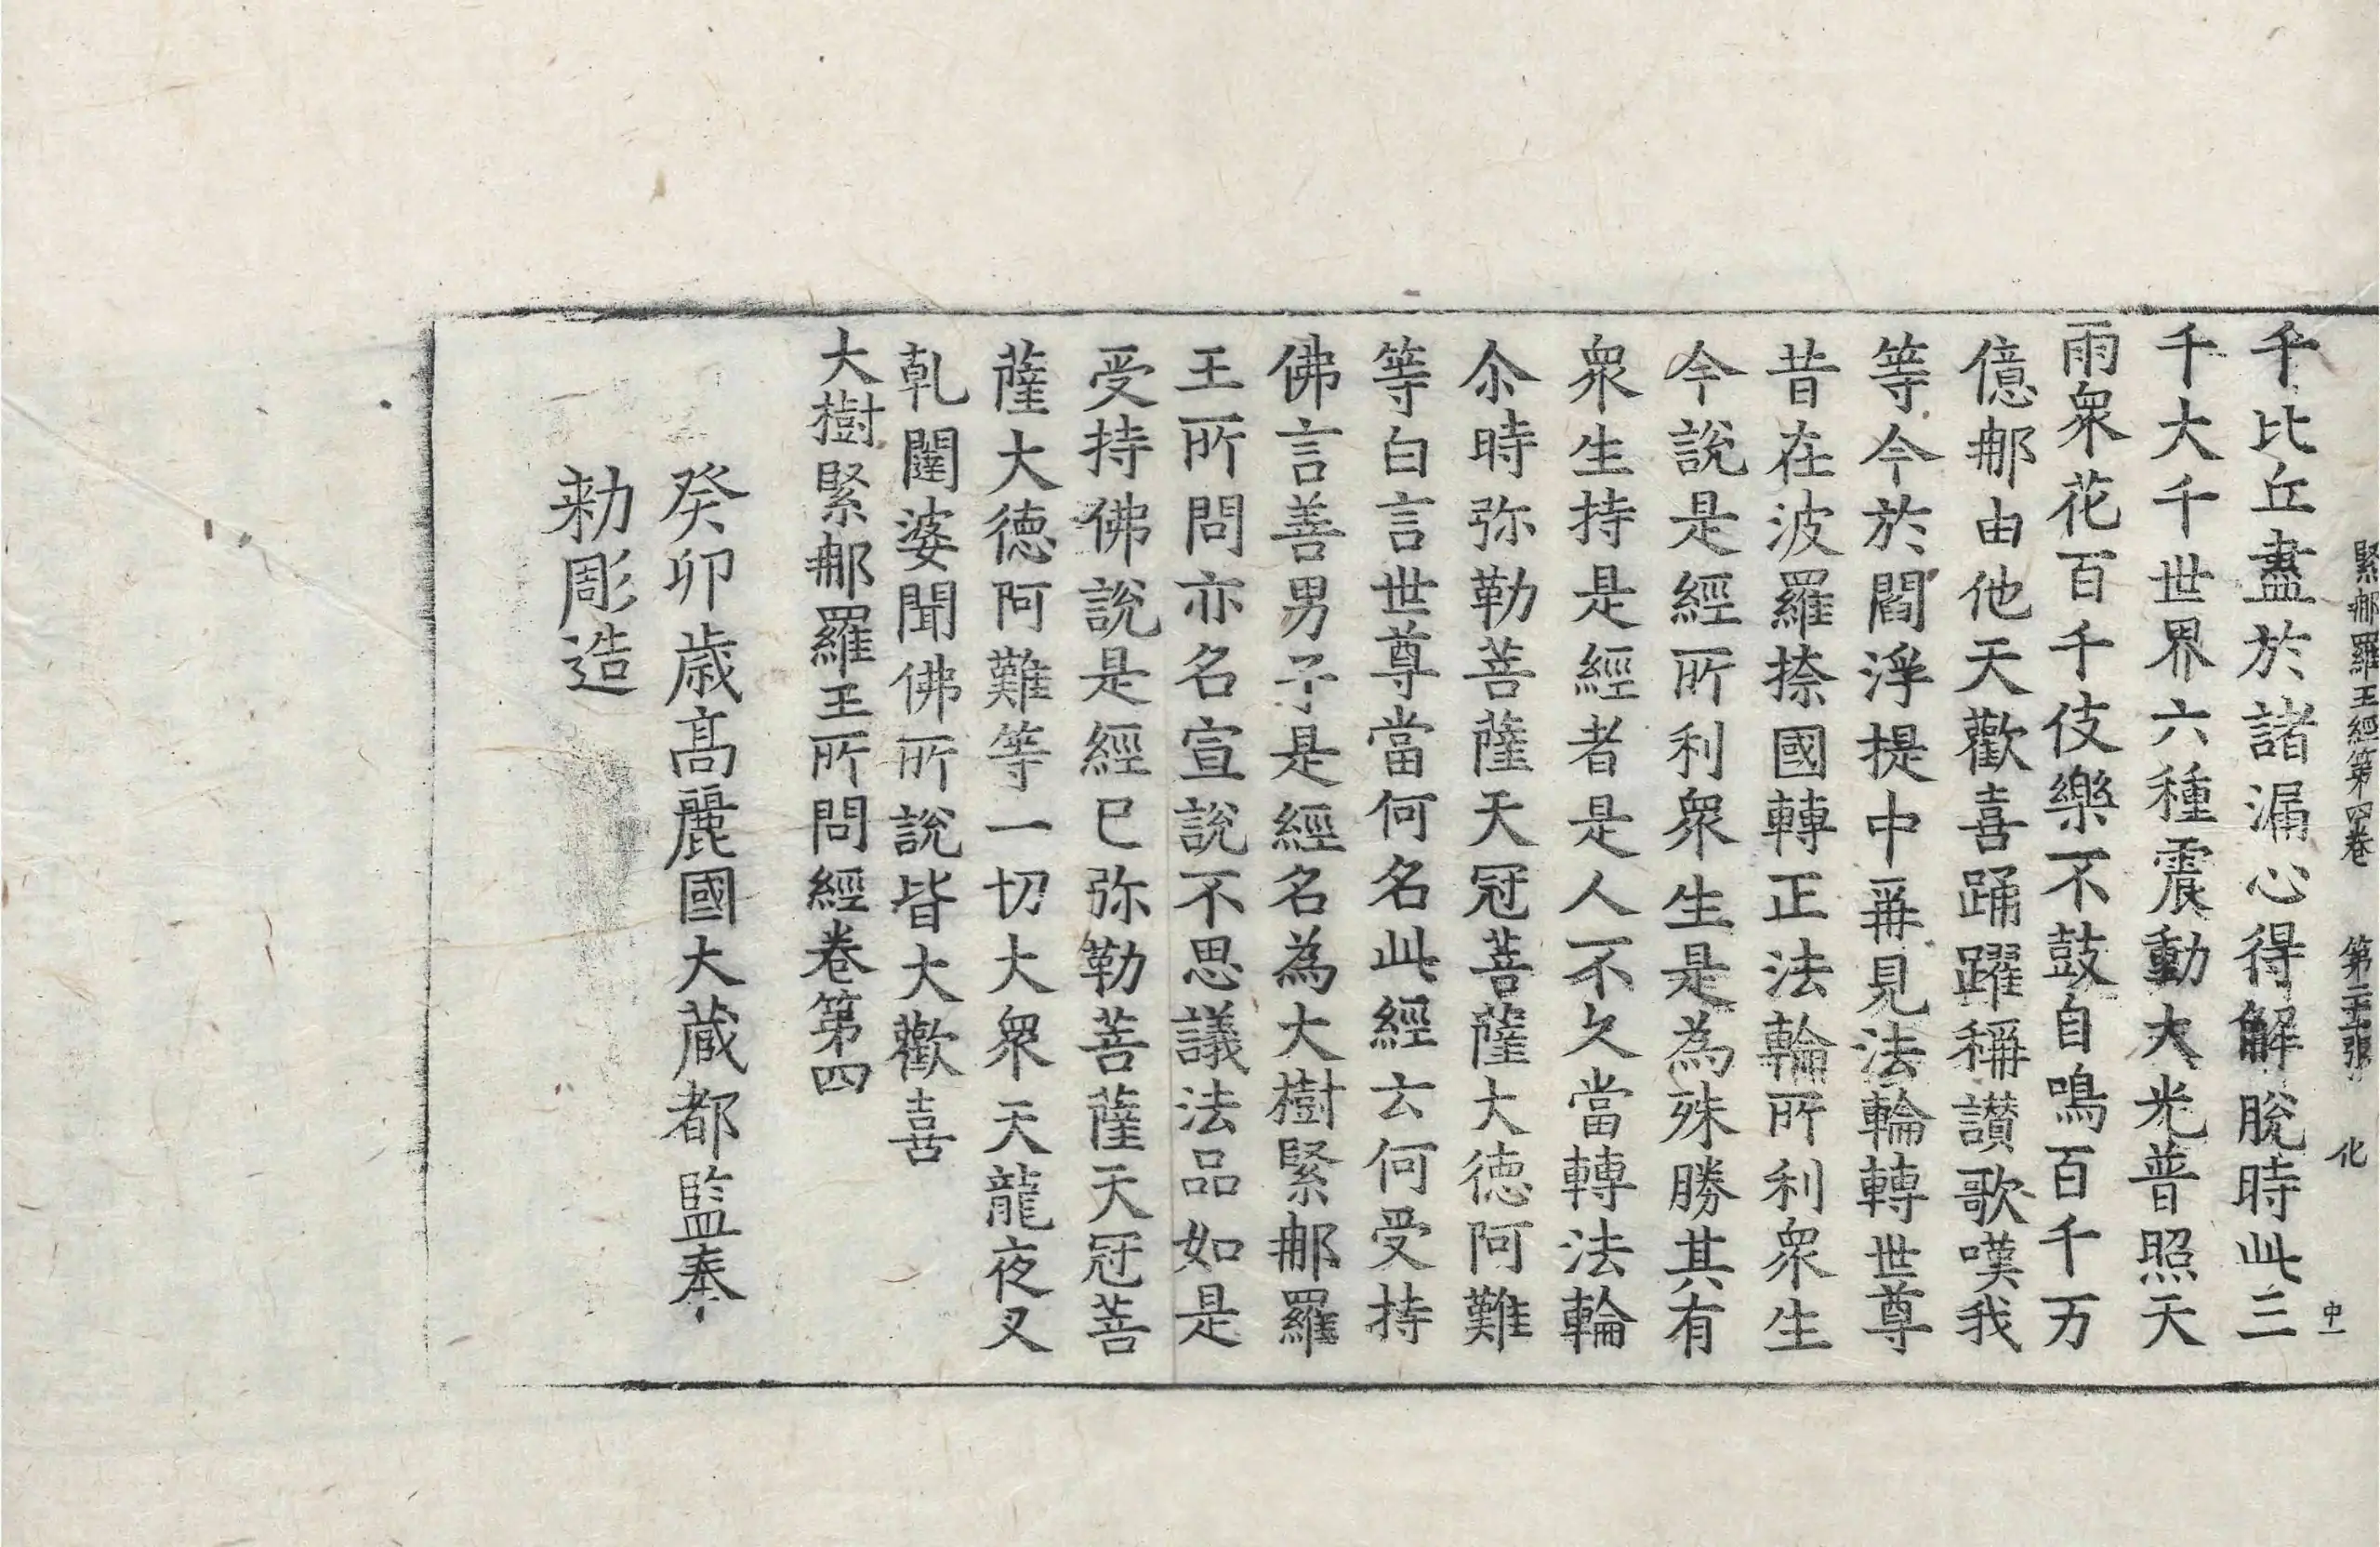 緊那羅王經第四卷 第二十五張 化 中一
千比丘盡於諸漏心得解脫時此三
千大千世界六種震動大光普照天
雨衆花百千伎樂不鼓自鳴百千万
億那由他天歡喜踊躍稱讃歌嘆我
等今於閻浮提中再見法輪轉世尊
昔在波羅捺國轉正法輪所利衆生
今說是經所利衆生是為殊勝其有
衆生持是經者是人不久當轉法輪
尒時弥勒菩薩天冠菩薩大德阿難
等白言世尊當何名此經云何受持
佛言善男子是經名為大樹緊那羅
王所問亦名宣說不思議法品如是
受持佛說是經已弥勒菩薩天冠菩
薩大德阿難等一切大衆天龍夜叉
乹闥婆聞佛所說皆大歡喜
大樹緊那羅王所問經卷第四
癸卯歲高麗國大藏都監奉
勑彫造